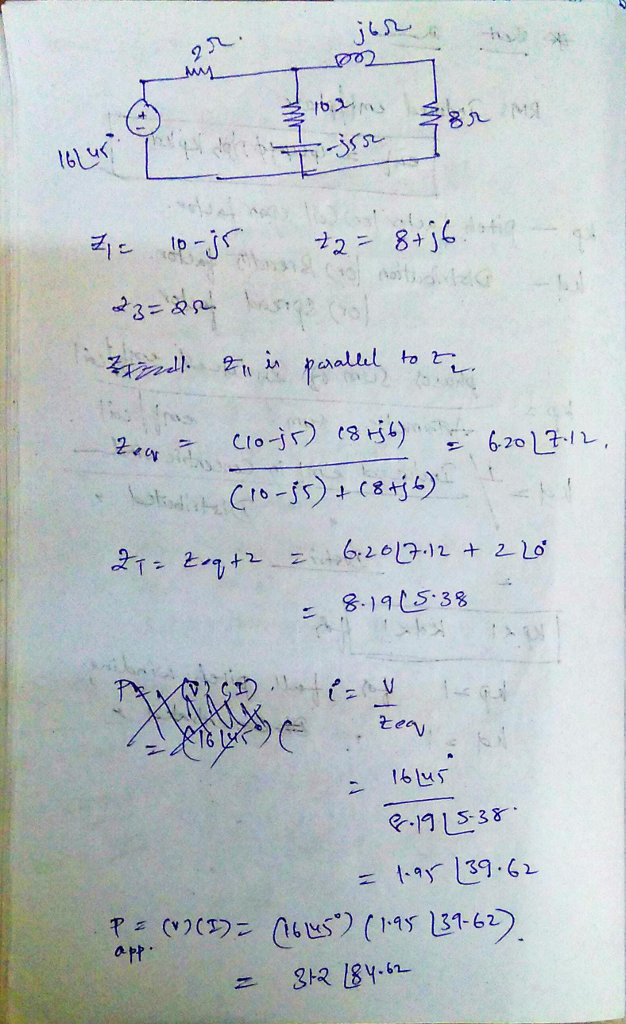 2Ω
j6Ω
10Ω
8Ω
-j5Ω
16∠45°
Z1 = 10-j5 Z2 = 8+j6
Z3 = 2Ω
Z1 is parallel to Z2.
Zeq = (10-j5) (8+j6) / (10-j5) + (8+j6) = 6.20∠7.12.
ZT = Zeq+2 = 6.20∠7.12 + 2∠0°
= 8.19∠5.38
P= (V) (I). i = V / Zeq
= (16∠45°) (
= 16∠45° / 8.19∠5.38.
= 1.95 ∠39.62
P app. = (V)(I) = (16∠45°) (1.95 ∠39.62).
= 31.2 ∠84.62